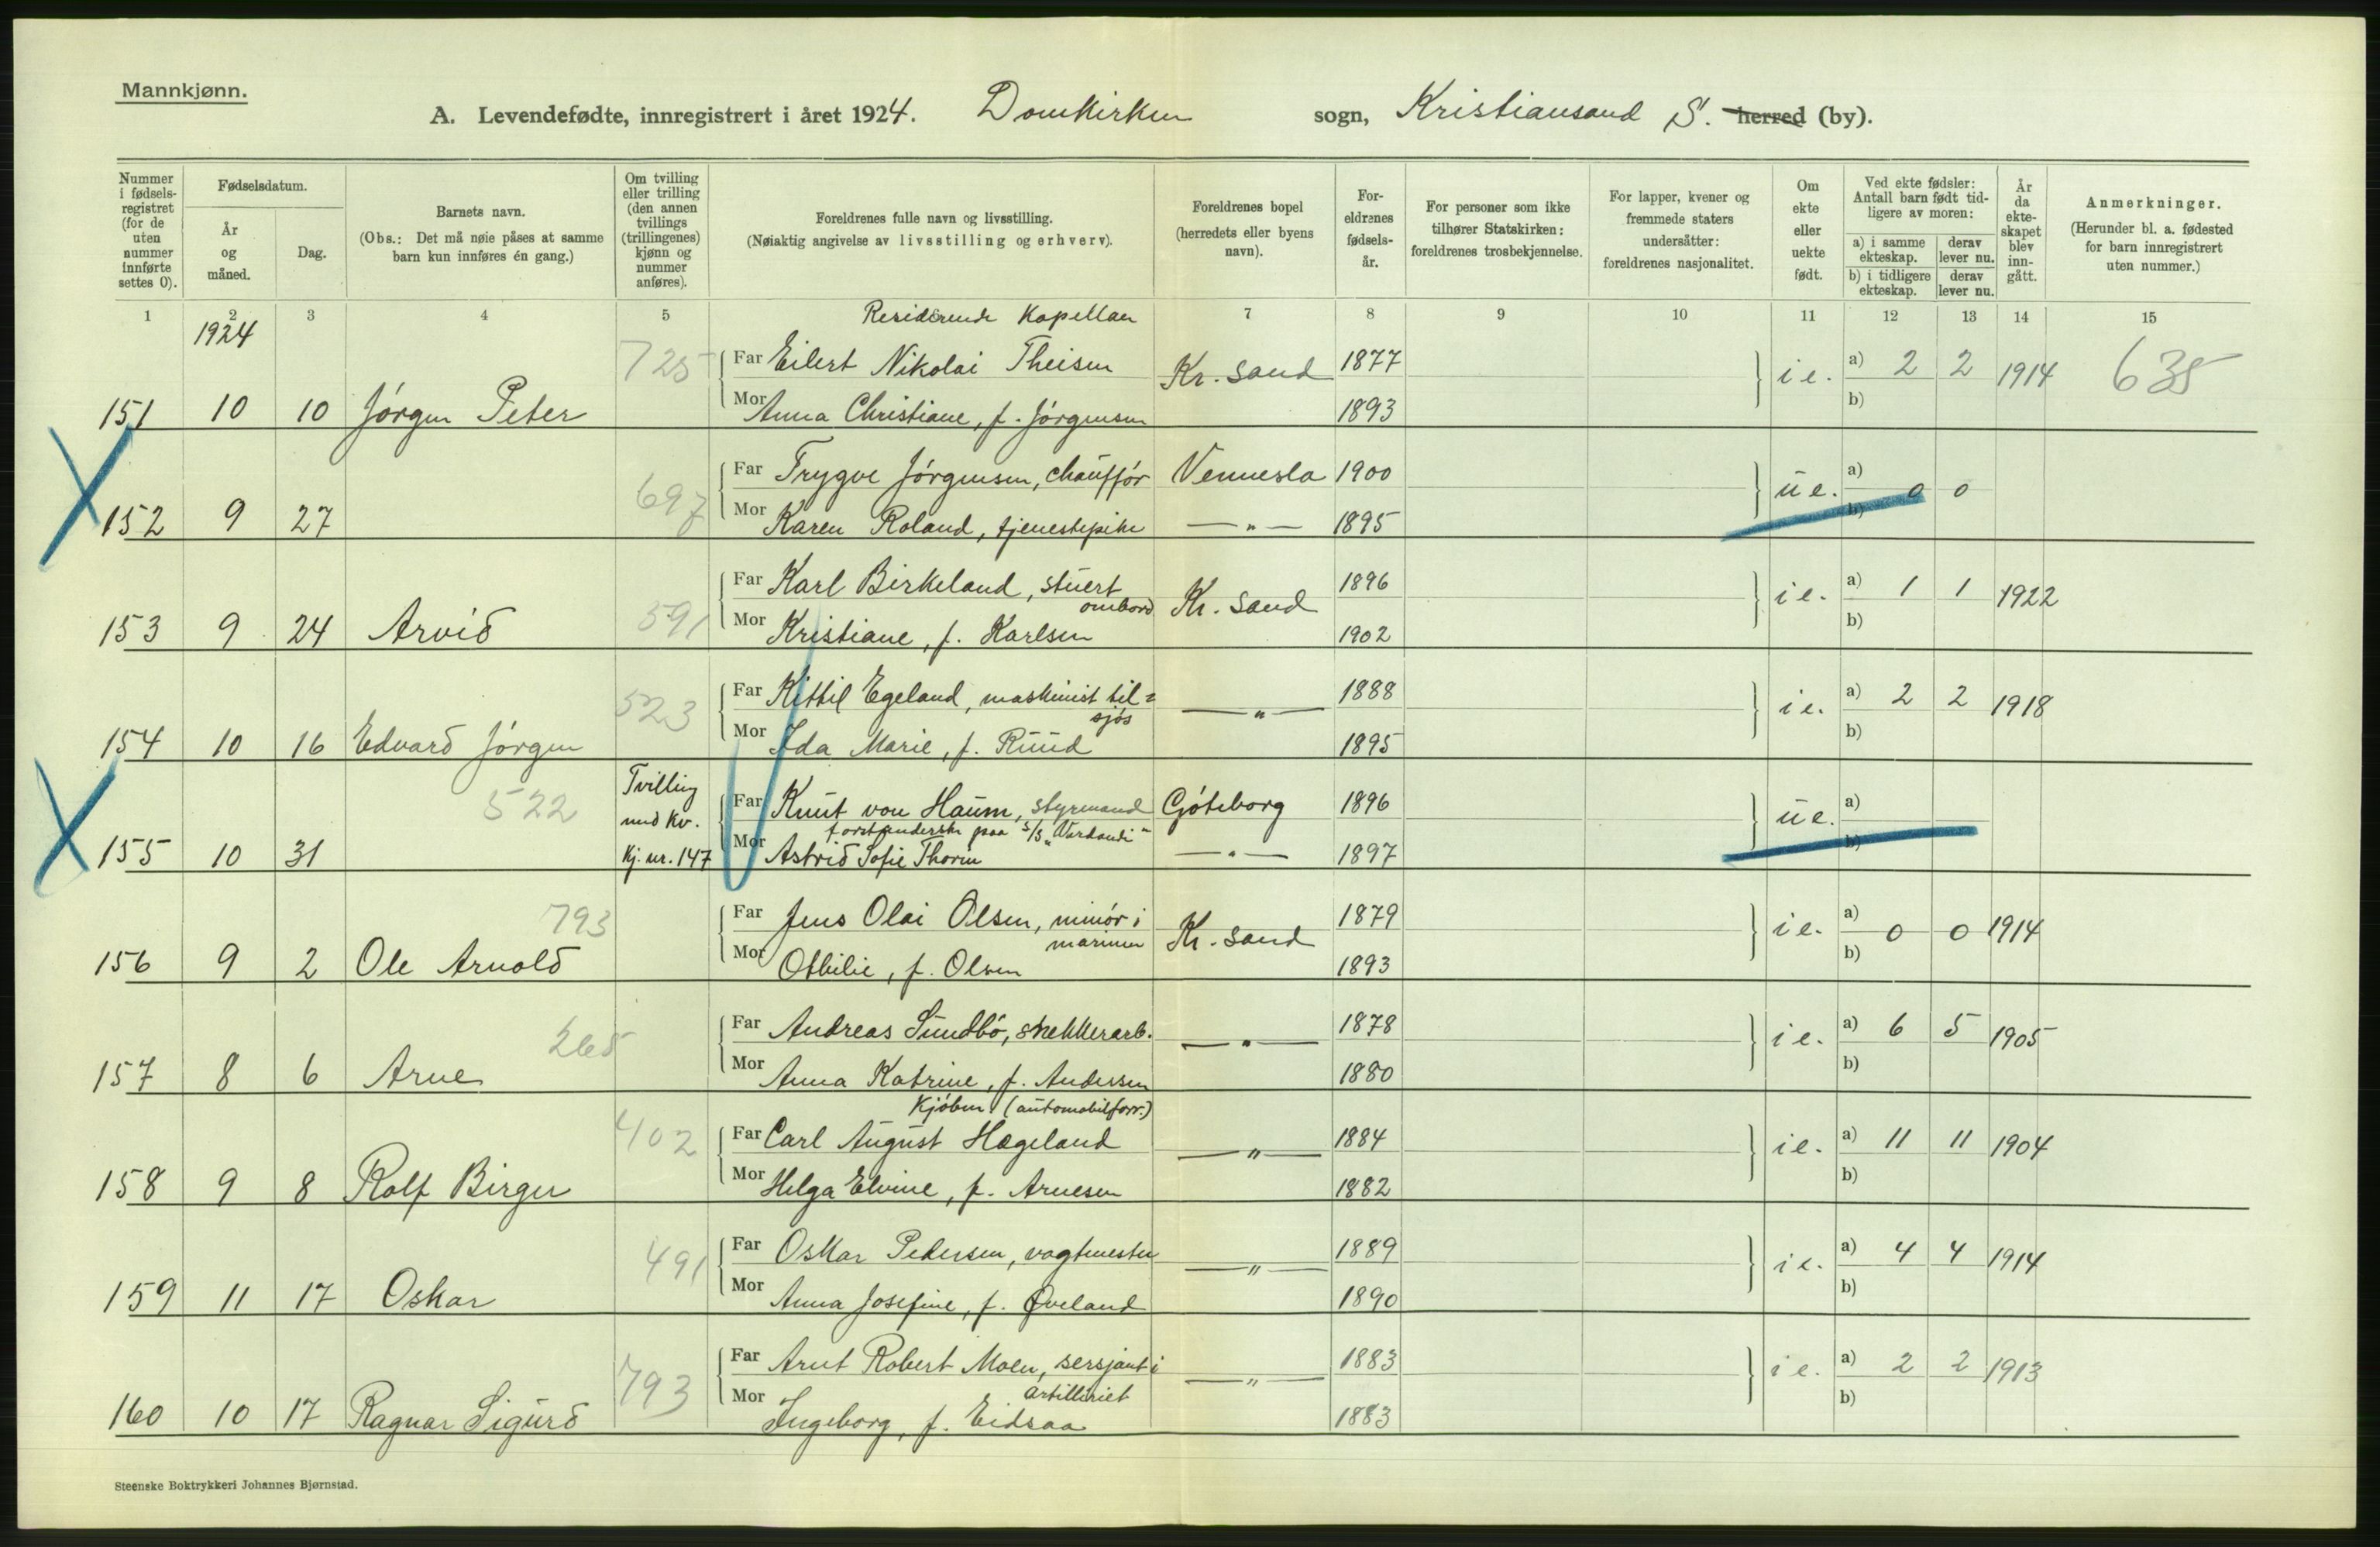 Mannkjønn.
A. Levendefødte, innregistrert i året 1924. Domkirken sogn, Kristiansand S. herred (by).
Nummer i fødsels-registret (for de uten nummer innførte settes 0).
Fødselsdatum.
År og måned.
Dag.
Barnets navn.
(Obs.: Det må nøie påses at samme barn kun innføres én gang.)
Om tvilling eller trilling (den annen tvillings (trillingenes) kjønn og nummer anføres).
Foreldrenes fulle navn og livsstilling.
(Nøiaktig angivelse av livsstilling og erhverv).
Foreldrenes bopel (herredets eller byens navn).
For-eldrenes fødsels-år.
For personer som ikke tilhører Statskirken: foreldrenes trosbekjennelse.
For lapper, kvener og fremmede staters undersåtter: foreldrenes nasjonalitet.
Om ekte eller uekte født.
Ved ekte fødsler: Antall barn født tid-ligere av moren:
a) i samme ekteskap. derav lever nu.
b) i tidligere ekteskap. derav lever nu.
År da ekte-skapet blev inn-gått.
Anmerkninger.
(Herunder bl. a. fødested for barn innregistrert uten nummer.)
1 2 3 4 5 6 7 8 9 10 11 12 13 14 15
1924
Residerende Kapellan
725 Far Eilert Nikolai Theisen Kr. sand 1877 i e. a) 2 2 1914 635
151 10 10 Jörgen Peter Mor Anna Christiane, f. Jörgensen 1893 b)
697 Far Trygve Jörgensen, chaufför Vennesla 1900 ue. a) 0 0
152 9 27 Mor Karen Roland, tjenestepike — " — 1895 b)
591 Far Karl Birkeland, stuert ombord Kr. sand 1896 i e. a) 1 1 1922
153 9 24 Arvid Mor Kristiane, f. Karlsen 1902 b)
523 Far Kittil Egeland, maskinist til= sjós — " — 1888 i e. a) 2 2 1918
154 10 16 Edvard Jörgen Mor Ida Marie, f. Ruud 1895 b)
522 Tvilling med kv. kj. nr. 147 Far Knut von Haum, styrmand Göteborg 1896 ue. a)
forstanderske paa s/s "Verdandi"
155 10 31 Mor Astrid Sofie Thorin — " — 1897 b)
793 Far Jens Olai Olsen, minör i marinen Kr. sand 1879 i e. a) 0 0 1914
156 9 2 Ole Arnold Mor Othilie, f. Olsen 1893 b)
265 Far Andreas Sundbö, snekkerarb. — " — 1878 i e. a) 6 5 1905
157 8 6 Arne Mor Anna Katrine, f. Andersen 1880 b)
Kjöbm. (automobilforr.)
402 Far Carl August Hægeland — " — 1884 i e. a) 11 11 1904
158 9 8 Rolf Birger Mor Helga Elvine, f. Arnesen 1882 b)
491 Far Oskar Pedersen, vagtmester — " — 1889 i e. a) 4 4 1914
159 11 17 Oskar Mor Anna Josefine, f. Øveland 1890 b)
793 Far Arnt Robert Moen, sersjant i artilleriet — " — 1883 i e. a) 2 2 1913
160 10 17 Ragnar Sigurd Mor Ingeborg, f. Eidsaa 1883 b)
Steenske Boktrykkeri Johannes Bjørnstad.